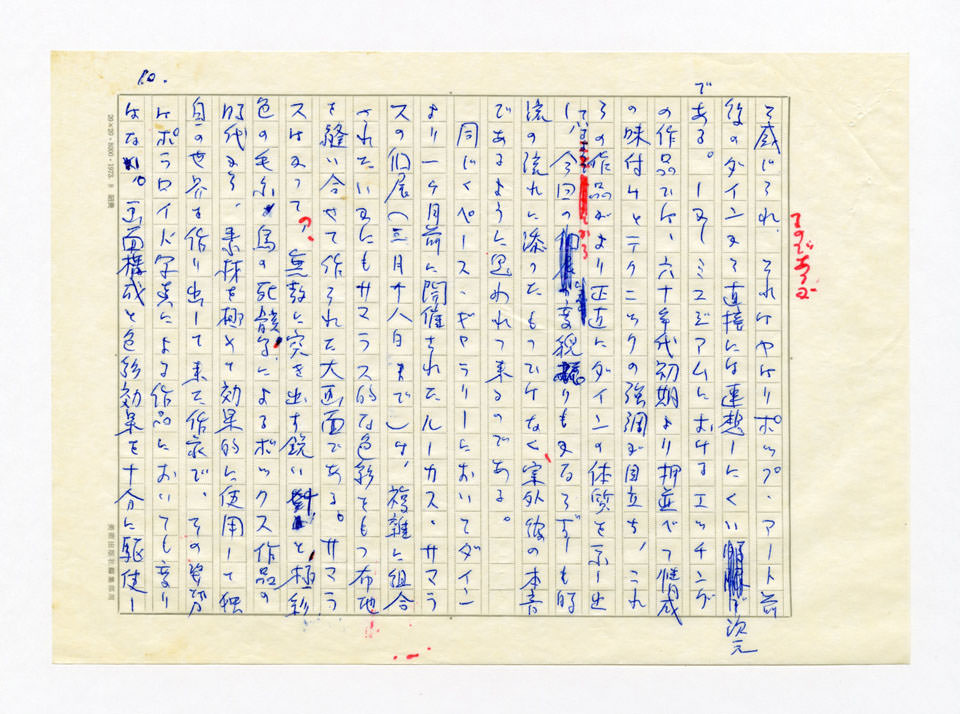 10.
て感じられ、それはやはりポップ・アート前
後のダインから直接には連想しにくい次元
である。しかしミュゼアムにおけるエッチング
の作品では、六十年代初期より押並べて情感
の味付けとテクニックの強調が目立ち、これ
らの作品がより正直にダインの体質を示し出
して、今回の変貌ぶりもあながちずしも時
流の流れに添ったものではなく案外彼の本音
であるように思われて来るのである。
同じくペース・ギャラリーにおいてダイン
より一ヶ月前に開催されたルーカス・サマラ
スの個展（三月十八日まで）は、複雑に組合
されたいかにもサマラス的な色彩をもつ布地
を縫い合せて作られた大画面である。サマラ
スはかつての、無数に突き出す鋭い針と極彩
色の毛糸、鳥の死骸等によるボックス作品の
時代から、素材を極めて効果的に使用して独
自の世界を作り出して来た作家で、その姿勢
はポラロイド写真による作品においても変り
はない。画面構成と色彩効果を十分に駆使し
ものであるが
20×20・8000・1973.9 昭美
美術出版社編集部用